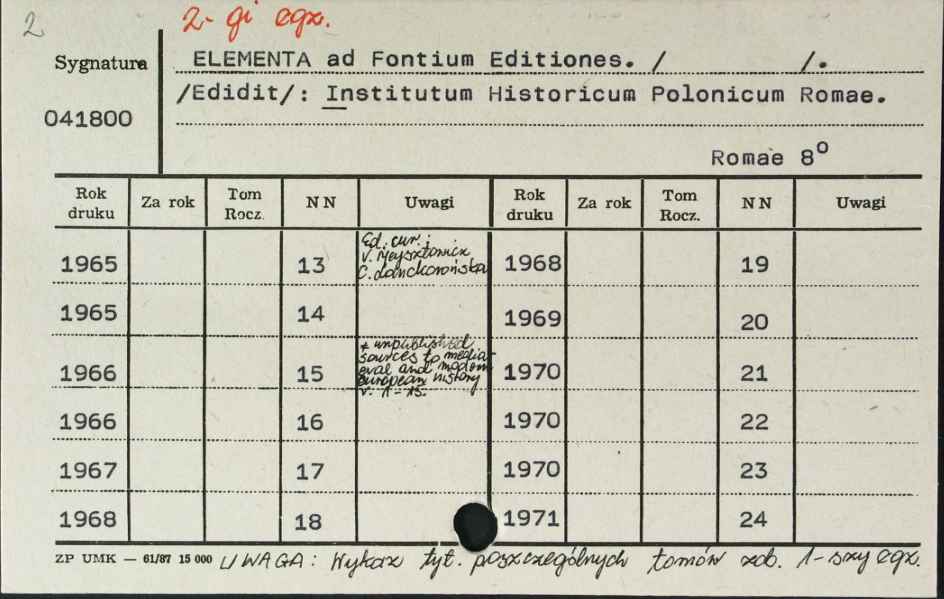 2
2-gi egz.
Sygnatura
041800
ELEMENTA ad Fontium Editiones. / /.
/Edidit/: Institutum Historicum Polonicum Romae.
Romae 8⁰
Rok druku Za rok Tom Rocz. NN Uwagi Rok druku Za rok Tom Rocz. NN Uwagi
1965 13 1968 19
Ed. cur.:
V. Meysztowicz
C. Lanckorońska
1965 14 1969 20
1966 15 1970 21
* unpublished
sources to mediæ-
eval and modern
european history
v. 1-15.
1966 16 1970 22
1967 17 1970 23
1968 18 1971 24
ZP UMK — 61/87 15 000 UWAGA: Wykaz tyt. poszczególnych tomów zob. 1-szy egz.